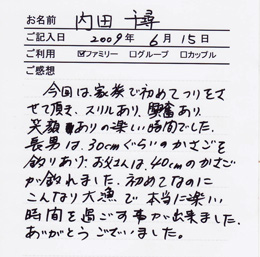 お名前 内田 千尋
ご記入日 2009年 6月 15日
ご利用 ☑ファミリー □グループ □カップル
ご感想
今回は、家族で初めてつりをさ
せて頂き、スリルあり、興奮あり、
笑顔ありの楽しい時間でした。
長男は、30cmぐらいのかさごを
釣りあげ、お父さんは、40cmのかさご
が釣れました。初めてなのに
こんなり大漁で本当に楽しい
時間を過ごす事が出来ました。
ありがとうございました。